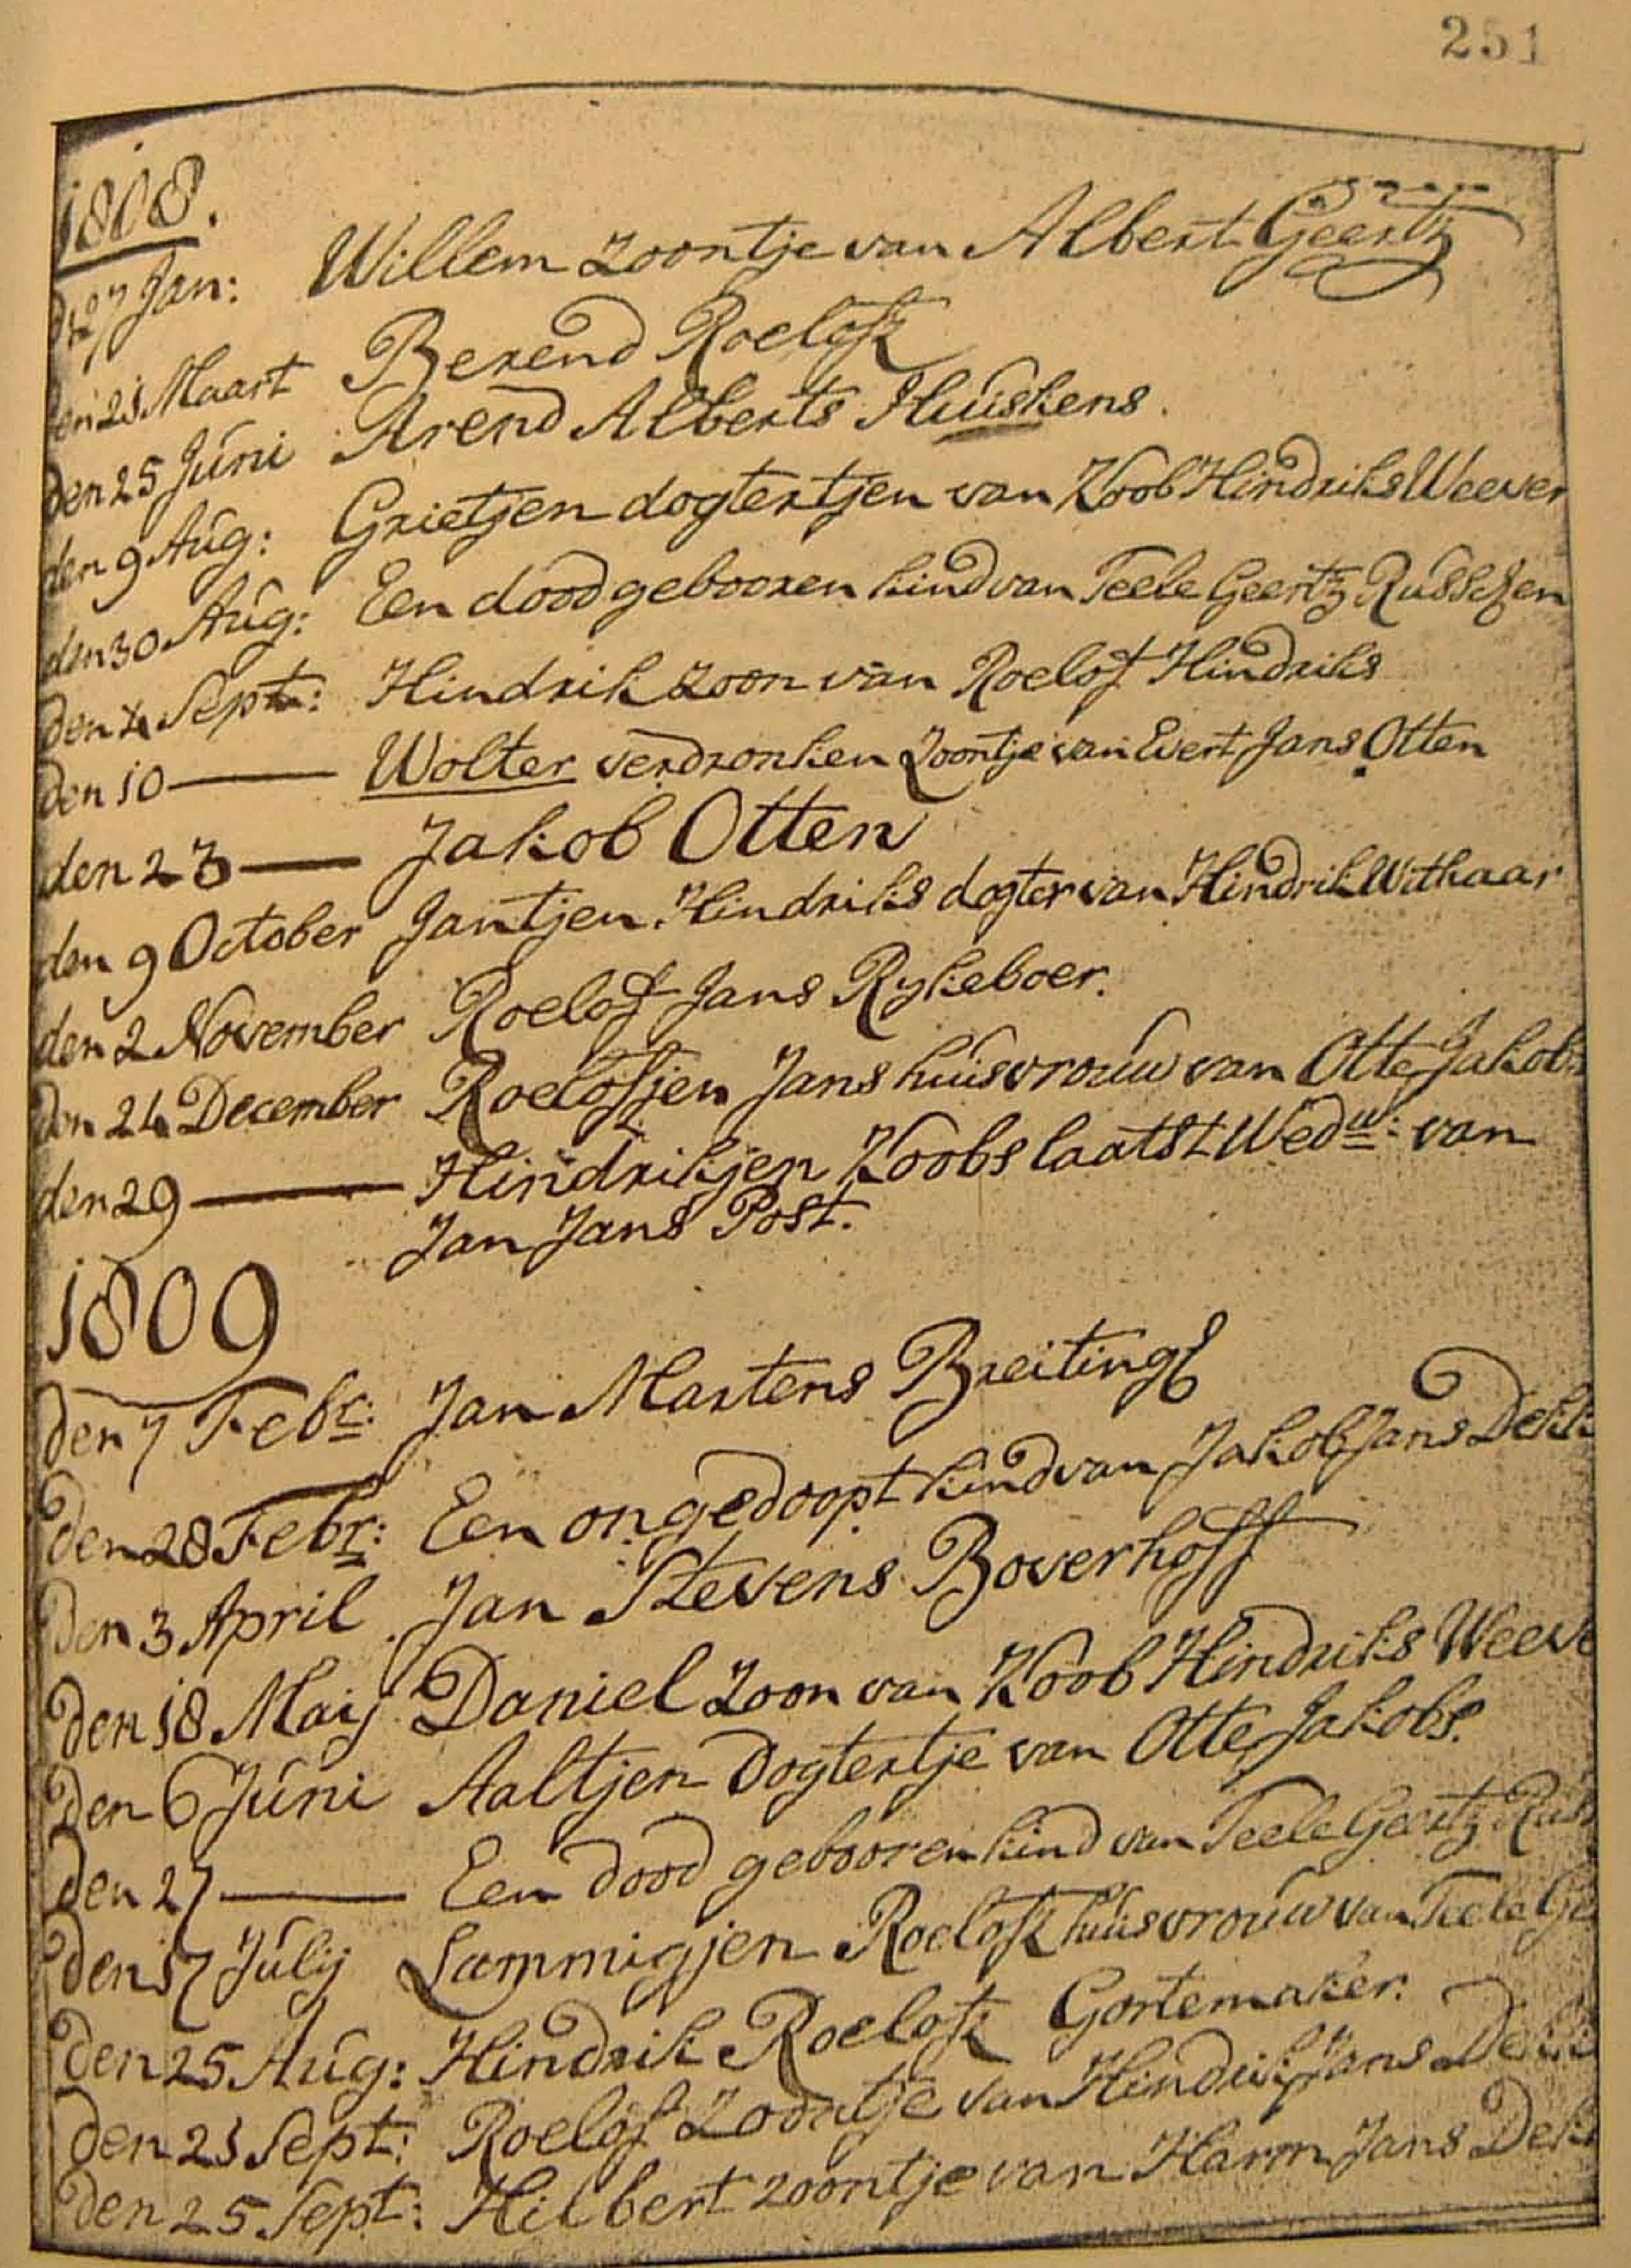 251
1808.
d 27 Jan: Willem zoontje van Albert Geertz
den 21 Maart Berend Roelofz
den 25 Júni Arend Alberts Huiskens.
den 9 Aúg: Grietjen dogtertjen van Koob Hindriks Weever
den 30 Aúg: Een dood gebooren kind van Teele Geertz Russchen
den 4 Sept: Hindrik zoon van Roelof Hindriks
den 10 — Wolter verdronken Zoontje van Evert Jans Otten
den 23 — Jakob Otten
den 9 October Jantjen Hindriks dogter van Hindrik Withaar
den 2 November Roelof Jans Rykeboer.
den 24 December Roelofjen Jans huisvrouw van Otte Jakobs
den 29 — Hindrikjen Koobs laatst Wedw: van
Jan Jans Post.
1809
den 7 Febr: Jan Martens Breitings
den 28 Febr: Een ongedoopt kind van Jakob Jans Dekk
den 3 April Jan Stevens Boverhoff
den 18 Maij Daniel Zoon van Koob Hindriks Weeve
den 6 Júni Aaltjen Dogtertje van Otte Jakobs.
den 27 — Een dood gebooren kind van Teele Geertz Rus
den 17 Júlij Lammigjen Roelofz huisvrouw van Teele Ge
den 25 Aúg: Hindrik Roelofz Gortemaker.
den 21 Sept: Roelof Zoontje van Hindrik Jans Dekk
den 25 Sept: Hilbert zoontje van Harm Jans Dek